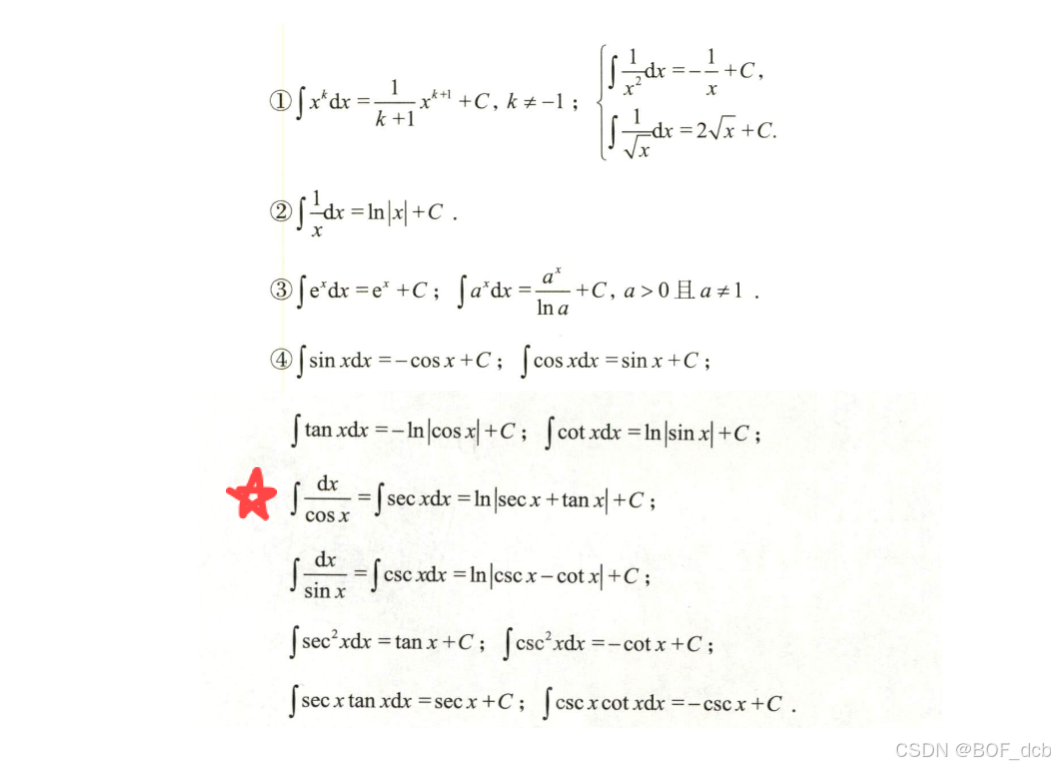 ① ∫x^k dx = \frac{1}{k+1}x^{k+1} + C, k ≠ −1; { ∫\frac{1}{x^2}dx = −\frac{1}{x} + C,
∫\frac{1}{\sqrt{x}}dx = 2\sqrt{x} + C.
② ∫\frac{1}{x}dx = ln|x| + C .
③ ∫e^x dx = e^x + C; ∫a^x dx = \frac{a^x}{ln a} + C, a > 0 且 a ≠ 1 .
④ ∫sin xdx = −cos x + C; ∫cos xdx = sin x + C;
∫tan xdx = −ln|cos x| + C; ∫cot xdx = ln|sin x| + C;
∫\frac{dx}{cos x} = ∫sec xdx = ln|sec x + tan x| + C;
∫\frac{dx}{sin x} = ∫csc xdx = ln|csc x − cot x| + C;
∫sec^2 xdx = tan x + C; ∫csc^2 xdx = −cot x + C;
∫sec x tan xdx = sec x + C; ∫csc x cot xdx = −csc x + C .
CSDN @BOF_dcb